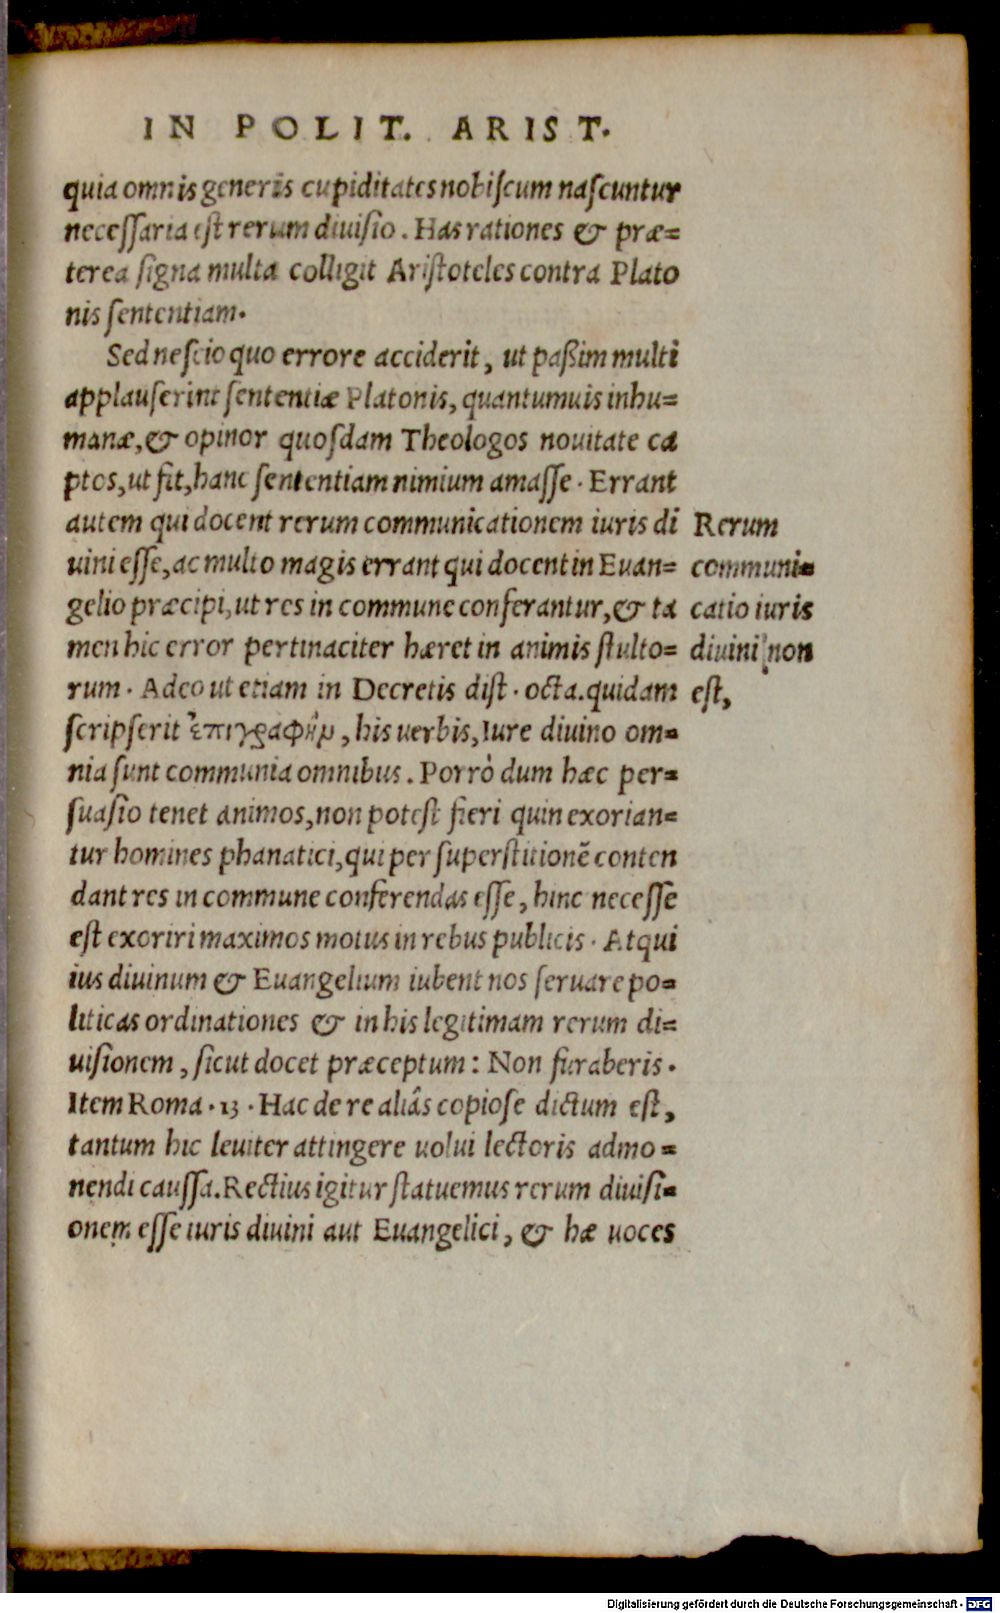 IN POLIT. ARIST.
quia omnis generis cupiditates nobiſcum naſcuntur
neceſſaria eſt rerum diuiſio. Has rationes & præ=
terea ſigna multa colligit Ariſtoteles contra Plato
nis ſententiam.
Sed neſcio quo errore acciderit, ut paßim multi
applauſerint ſententiæ Platonis, quantumuis inhu=
manæ, & opinor quoſdam Theologos nouitate ca
ptos, ut fit, hanc ſententiam nimium amaſſe. Errant
autem qui docent rerum communicationem iuris di
uini eſſe, ac multo magis errant qui docent in Euan=
gelio præcipi, ut res in commune conferantur, & ta
men hic error pertinaciter hæret in animis ſtulto=
rum. Adeo ut etiam in Decretis diſt. octa. quidam
ſcripſerit ἐπιγραφὴν, his uerbis, Iure diuino om=
nia ſunt communia omnibus. Porrò dum hæc per=
ſuaſio tenet animos, non poteſt fieri quin exorian=
tur homines phanatici, qui per ſuperſtitionē conten
dant res in commune conferendas eſſe, hinc neceſſe
eſt exoriri maximos motus in rebus publicis. Atqui
ius diuinum & Euangelium iubent nos ſeruare po=
liticas ordinationes & in his legitimam rerum di=
uiſionem, ſicut docet præceptum: Non furaberis.
Item Roma. 13. Hac de re aliâs copioſe dictum eſt,
tantum hic leuiter attingere uolui lectoris admo=
nendi cauſſa. Rectius igitur ſtatuemus rerum diuiſi=
onem eſſe iuris diuini aut Euangelici, & hæ uoces
Rerum
communi=
catio iuris
diuini non
eſt,
Digitalisierung gefördert durch die Deutsche Forschungsgemeinschaft - DFG